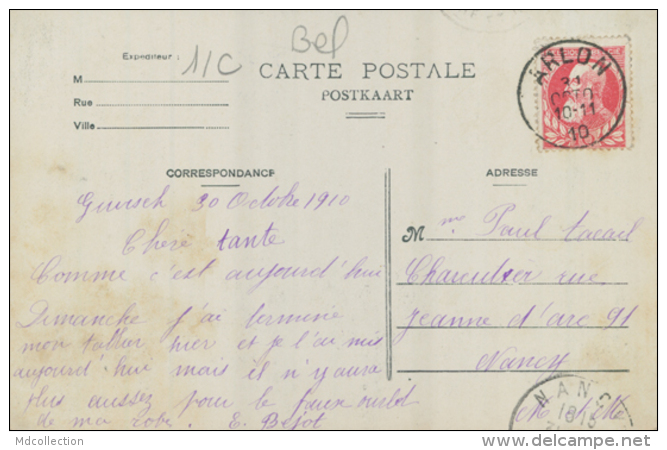 Bel
1/C
Expéditeur :
CARTE POSTALE
POSTKAART
M
Rue
Ville
ARLON
31
OCTO
10-11
10
CORRESPONDANCE
ADRESSE
30 Octobre 1910
Chère tante
Comme c'est aujourd'hui
Dimanche j'ai terminé
mon hier et je l'ai mis
aujourd'hui mais il n'y aura
plus assez pour le faux ourlet
de ma robe. E. Bejot
Mme Paul
Charcutier rue
Jeanne d'arc 91
Nancy
M & Mlle
NANC
18 15
Mdcollection
delcampe.net